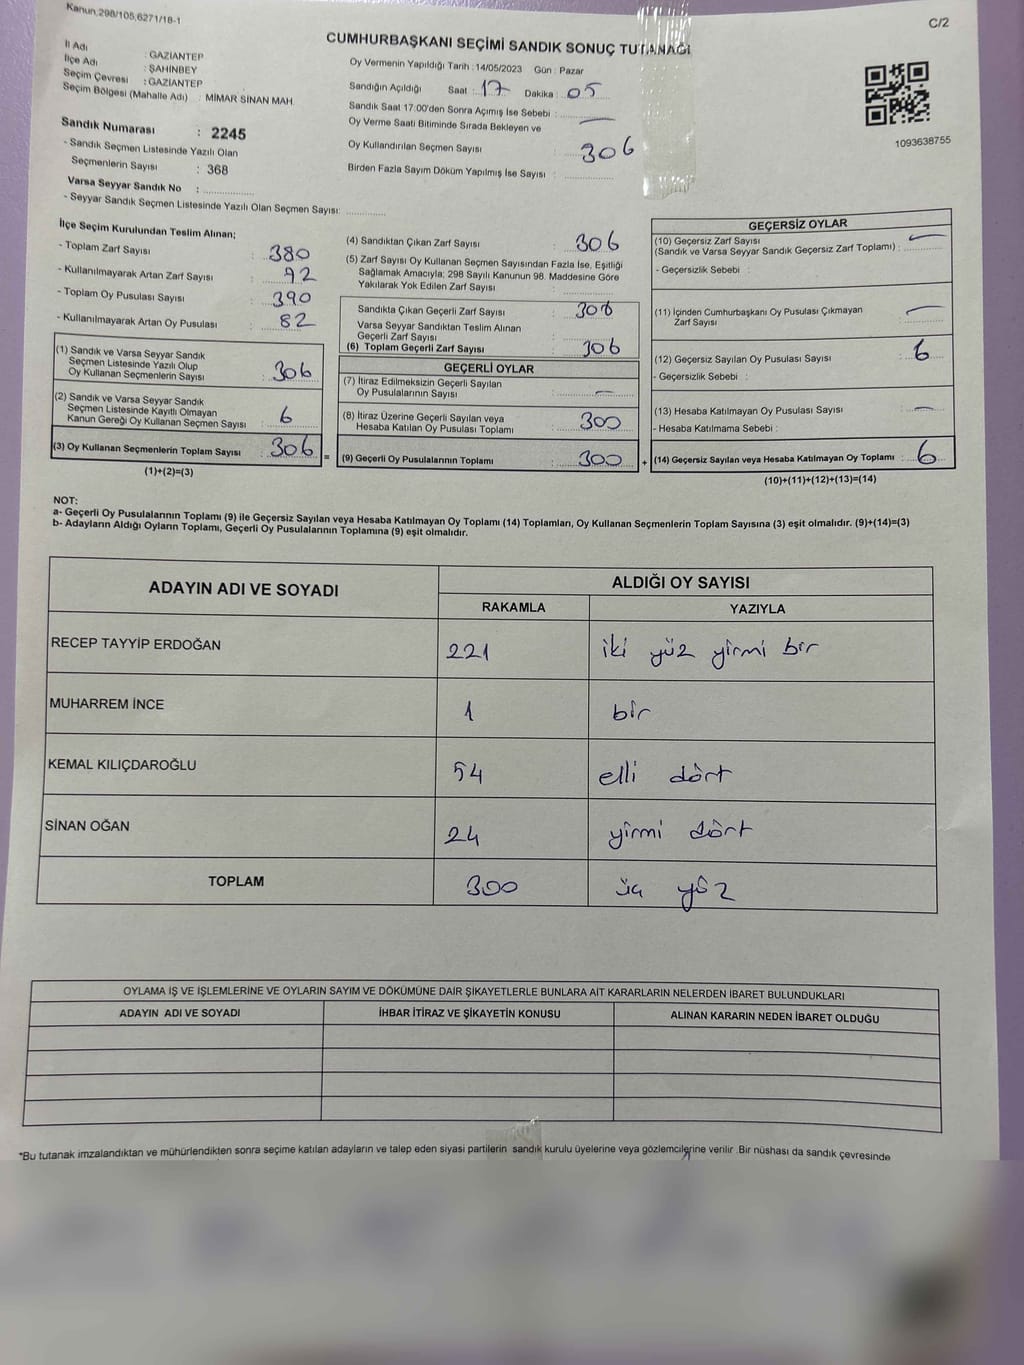 Kanun,298/105,6271/18-1
C/2
CUMHURBAŞKANI SEÇİMİ SANDIK SONUÇ TUTANAĞI
İl Adı : GAZİANTEP
İlçe Adı : ŞAHİNBEY
Seçim Çevresi : GAZİANTEP
Seçim Bölgesi (Mahalle Adı) : MİMAR SİNAN MAH.
Sandık Numarası : 2245
- Sandık Seçmen Listesinde Yazılı Olan
Seçmenlerin Sayısı : 368
Varsa Seyyar Sandık No :
- Seyyar Sandık Seçmen Listesinde Yazılı Olan Seçmen Sayısı:
Oy Vermenin Yapıldığı Tarih : 14/05/2023 Gün : Pazar
Sandığın Açıldığı Saat : 17 Dakika : 05
Sandık Saat 17:00'den Sonra Açımış İse Sebebi :
Oy Verme Saati Bitiminde Sırada Bekleyen ve
Oy Kullandırılan Seçmen Sayısı : 306
Birden Fazla Sayım Döküm Yapılmış İse Sayısı :
1093638755
İlçe Seçim Kurulundan Teslim Alınan;
- Toplam Zarf Sayısı : 380
- Kullanılmayarak Artan Zarf Sayısı : 92
- Toplam Oy Pusulası Sayısı : 390
- Kullanılmayarak Artan Oy Pusulası : 82
(1) Sandık ve Varsa Seyyar Sandık
Seçmen Listesinde Yazılı Olup
Oy Kullanan Seçmenlerin Sayısı : 306
(2) Sandık ve Varsa Seyyar Sandık
Seçmen Listesinde Kayıtlı Olmayan
Kanun Gereği Oy Kullanan Seçmen Sayısı : 6
(3) Oy Kullanan Seçmenlerin Toplam Sayısı : 306 =
(1)+(2)=(3)
(4) Sandıktan Çıkan Zarf Sayısı : 306
(5) Zarf Sayısı Oy Kullanan Seçmen Sayısından Fazla İse, Eşitliği
Sağlamak Amacıyla; 298 Sayılı Kanunun 98. Maddesine Göre
Yakılarak Yok Edilen Zarf Sayısı :
Sandıkta Çıkan Geçerli Zarf Sayısı : 306
Varsa Seyyar Sandıktan Teslim Alınan
Geçerli Zarf Sayısı :
(6) Toplam Geçerli Zarf Sayısı : 306
GEÇERLİ OYLAR
(7) İtiraz Edilmeksizin Geçerli Sayılan
Oy Pusulalarının Sayısı : —
(8) İtiraz Üzerine Geçerli Sayılan veya
Hesaba Katılan Oy Pusulası Toplamı : 300
(9) Geçerli Oy Pusulalarının Toplamı : 300 +
GEÇERSİZ OYLAR
(10) Geçersiz Zarf Sayısı
(Sandık ve Varsa Seyyar Sandık Geçersiz Zarf Toplamı) : —
- Geçersizlik Sebebi :
(11) İçinden Cumhurbaşkanı Oy Pusulası Çıkmayan
Zarf Sayısı : —
(12) Geçersiz Sayılan Oy Pusulası Sayısı : 6
- Geçersizlik Sebebi :
(13) Hesaba Katılmayan Oy Pusulası Sayısı : —
- Hesaba Katılmama Sebebi :
(14) Geçersiz Sayılan veya Hesaba Katılmayan Oy Toplamı : 6
(10)+(11)+(12)+(13)=(14)
NOT:
a- Geçerli Oy Pusulalarının Toplamı (9) ile Geçersiz Sayılan veya Hesaba Katılmayan Oy Toplamı (14) Toplamları, Oy Kullanan Seçmenlerin Toplam Sayısına (3) eşit olmalıdır. (9)+(14)=(3)
b- Adayların Aldığı Oyların Toplamı, Geçerli Oy Pusulalarının Toplamına (9) eşit olmalıdır.
ADAYIN ADI VE SOYADI
ALDIĞI OY SAYISI
RAKAMLA YAZIYLA
RECEP TAYYİP ERDOĞAN 221 iki yüz yirmi bir
MUHARREM İNCE 1 bir
KEMAL KILIÇDAROĞLU 54 elli dört
SİNAN OĞAN 24 yirmi dört
TOPLAM 300 üç yüz
OYLAMA İŞ VE İŞLEMLERİNE VE OYLARIN SAYIM VE DÖKÜMÜNE DAİR ŞİKAYETLERLE BUNLARA AİT KARARLARIN NELERDEN İBARET BULUNDUKLARI
ADAYIN ADI VE SOYADI İHBAR İTİRAZ VE ŞİKAYETİN KONUSU ALINAN KARARIN NEDEN İBARET OLDUĞU
*Bu tutanak imzalandıktan ve mühürlendikten sonra seçime katılan adayların ve talep eden siyasi partilerin sandık kurulu üyelerine veya gözlemcilerine verilir .Bir nüshası da sandık çevresinde